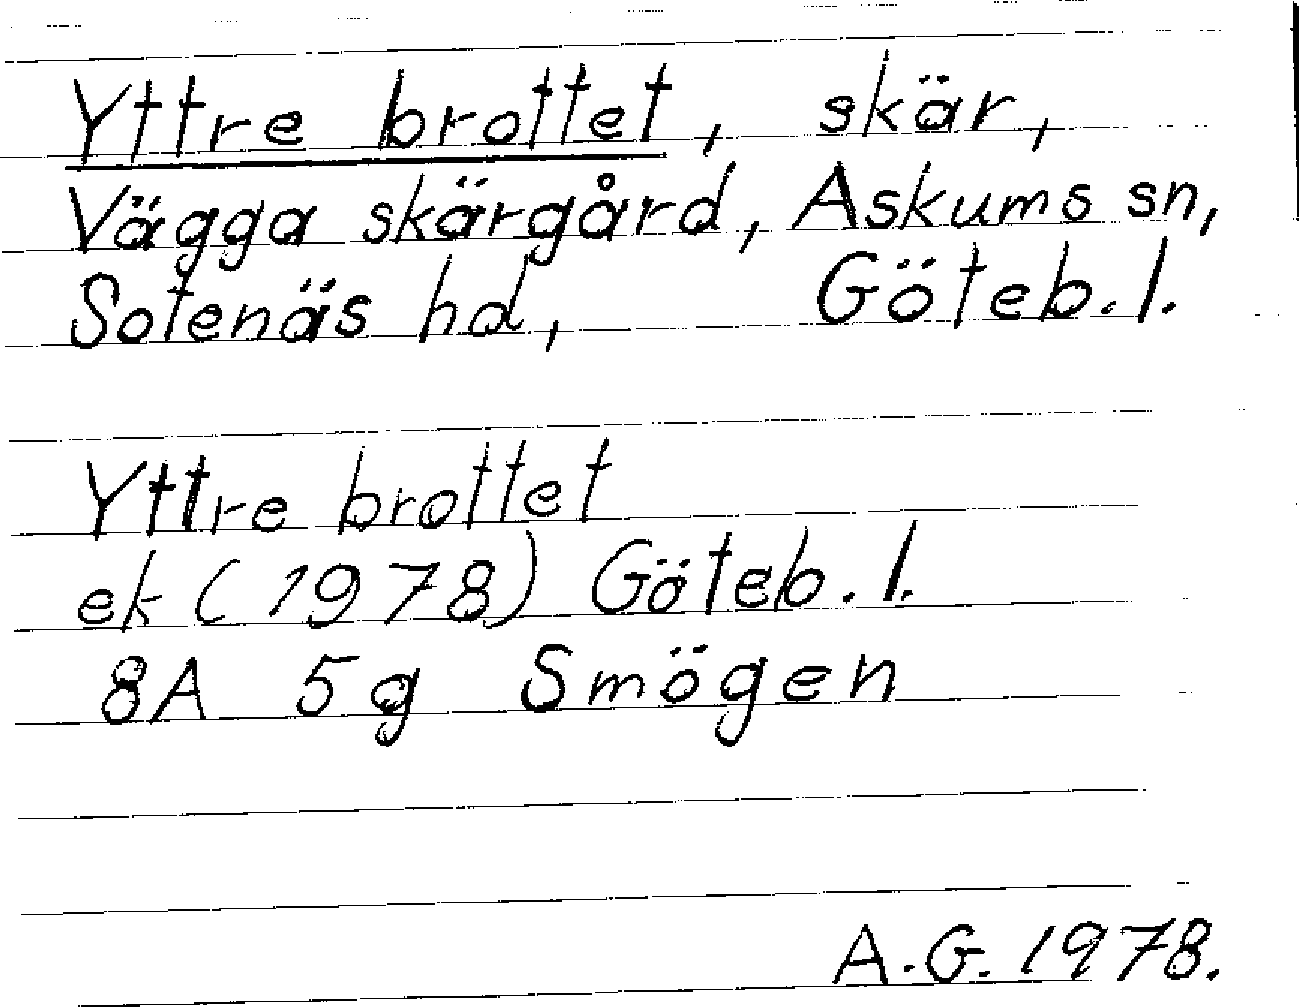 Yttre brottet, skär,
Vägga skärgård, Askums sn,
Sotenäs hd, Göteb. l.
Yttre brottet
ek (1978) Göteb. l.
8A 5g Smögen
A.G. 1978.